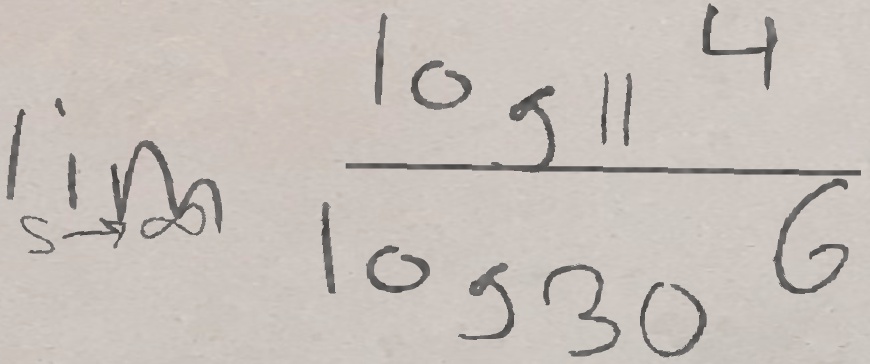 \lim_{s \to \infty} \frac{\log_{11} 4}{\log_{30} 6}